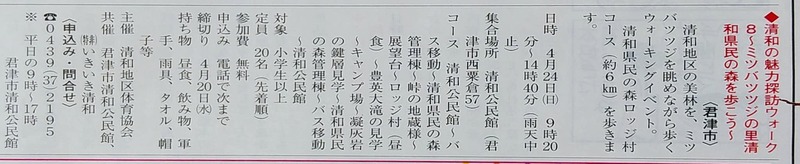 ◆清和の魅力探訪ウォーク
8～ミツバツツジの里清
和県民の森を歩こう～
（君津市）
清和地区の美林を、ミツ
バツツジを眺めながら歩く
ウォーキングイベント。
清和県民の森ロッジ村
コース（約6㎞）を歩きま
す。
日時　4月24日(日)　9時20
分～14時40分（雨天中
止）
集合場所　清和公民館（君
津市西粟倉57）
コース　清和公民館～バ
ス移動～清和県民の森
管理棟～峠の地蔵様～
展望台～ロッジ村（昼
食）～豊英大滝の見学
～キャンプ場～凝灰岩
の鍵層見学～清和県民
の森管理棟～バス移動
～清和公民館
対象　小学生以上
定員　20名（先着順）
参加費　無料
申込み　電話で次まで
締切り　4月20日(水)
持ち物　昼食、飲み物、軍
手、雨具、タオル、帽
子等
主催　清和地区体育協会
共催　君津市清和公民館、
㈱いきいき清和
〈申込み・問合せ〉
☎0439(37)2195
※　平日の9時～17時
君津市清和公民館